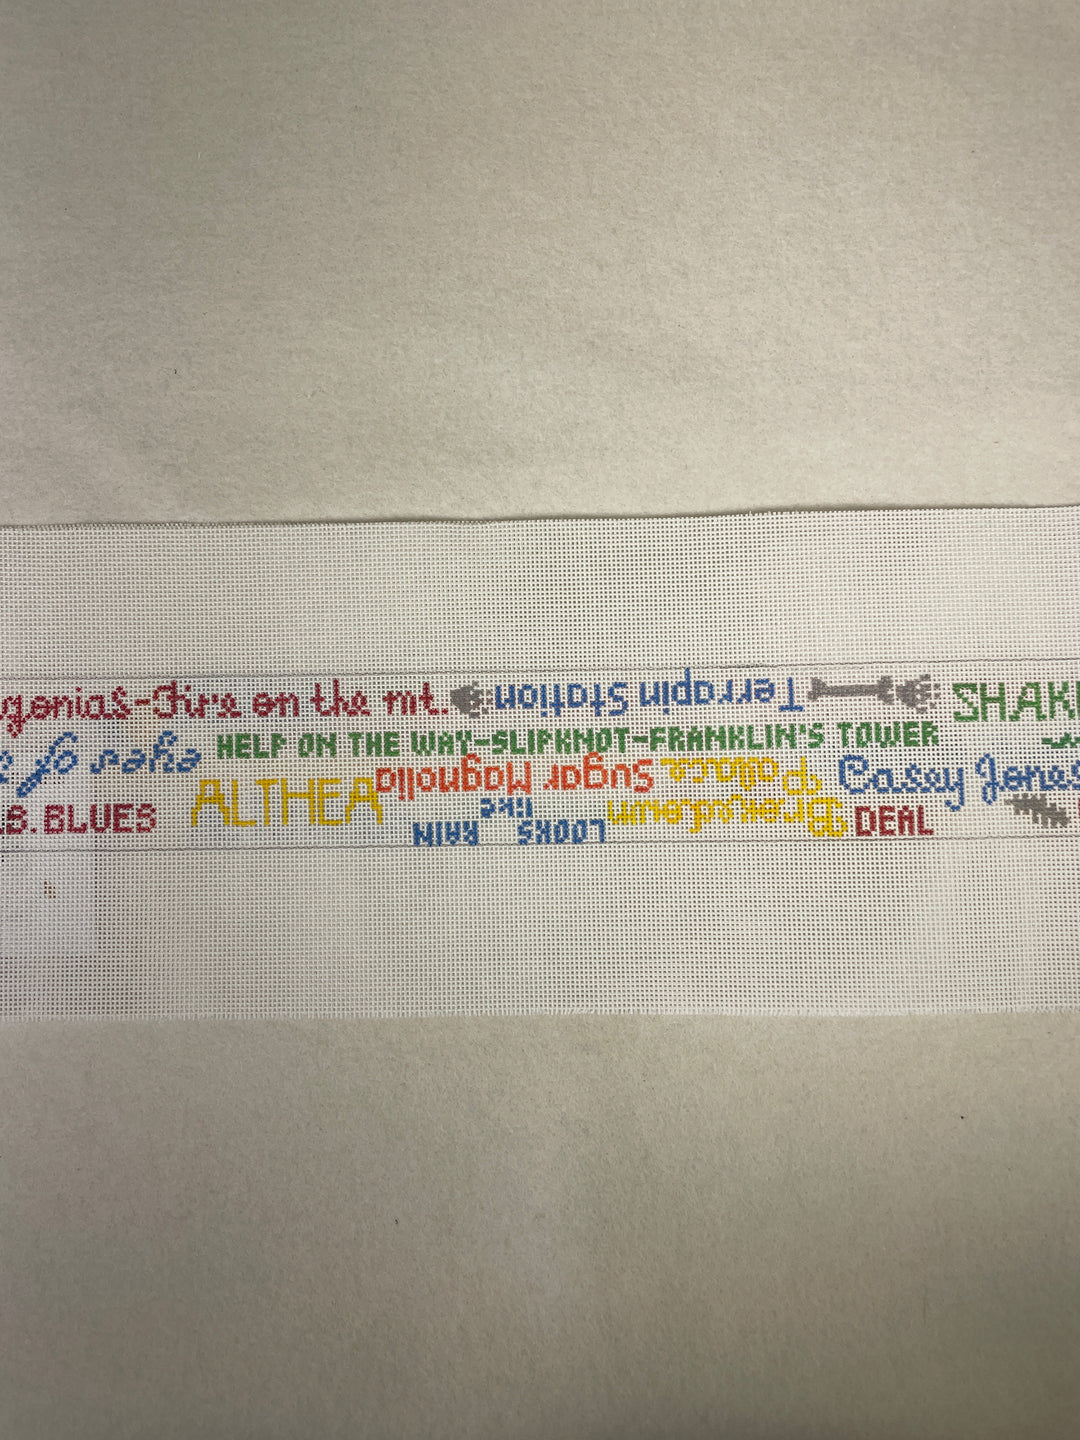 gonias-Fire on the mt.
Terrapin Station
SHAK
eyes of
HELP ON THE WAY-SLIPKNOT-FRANKLIN'S TOWER
S. BLUES
ALTHEA
Sugar Magnolia
Brokedown
Palace
Casey Jones
LOOKS
like
RAIN
DEAL